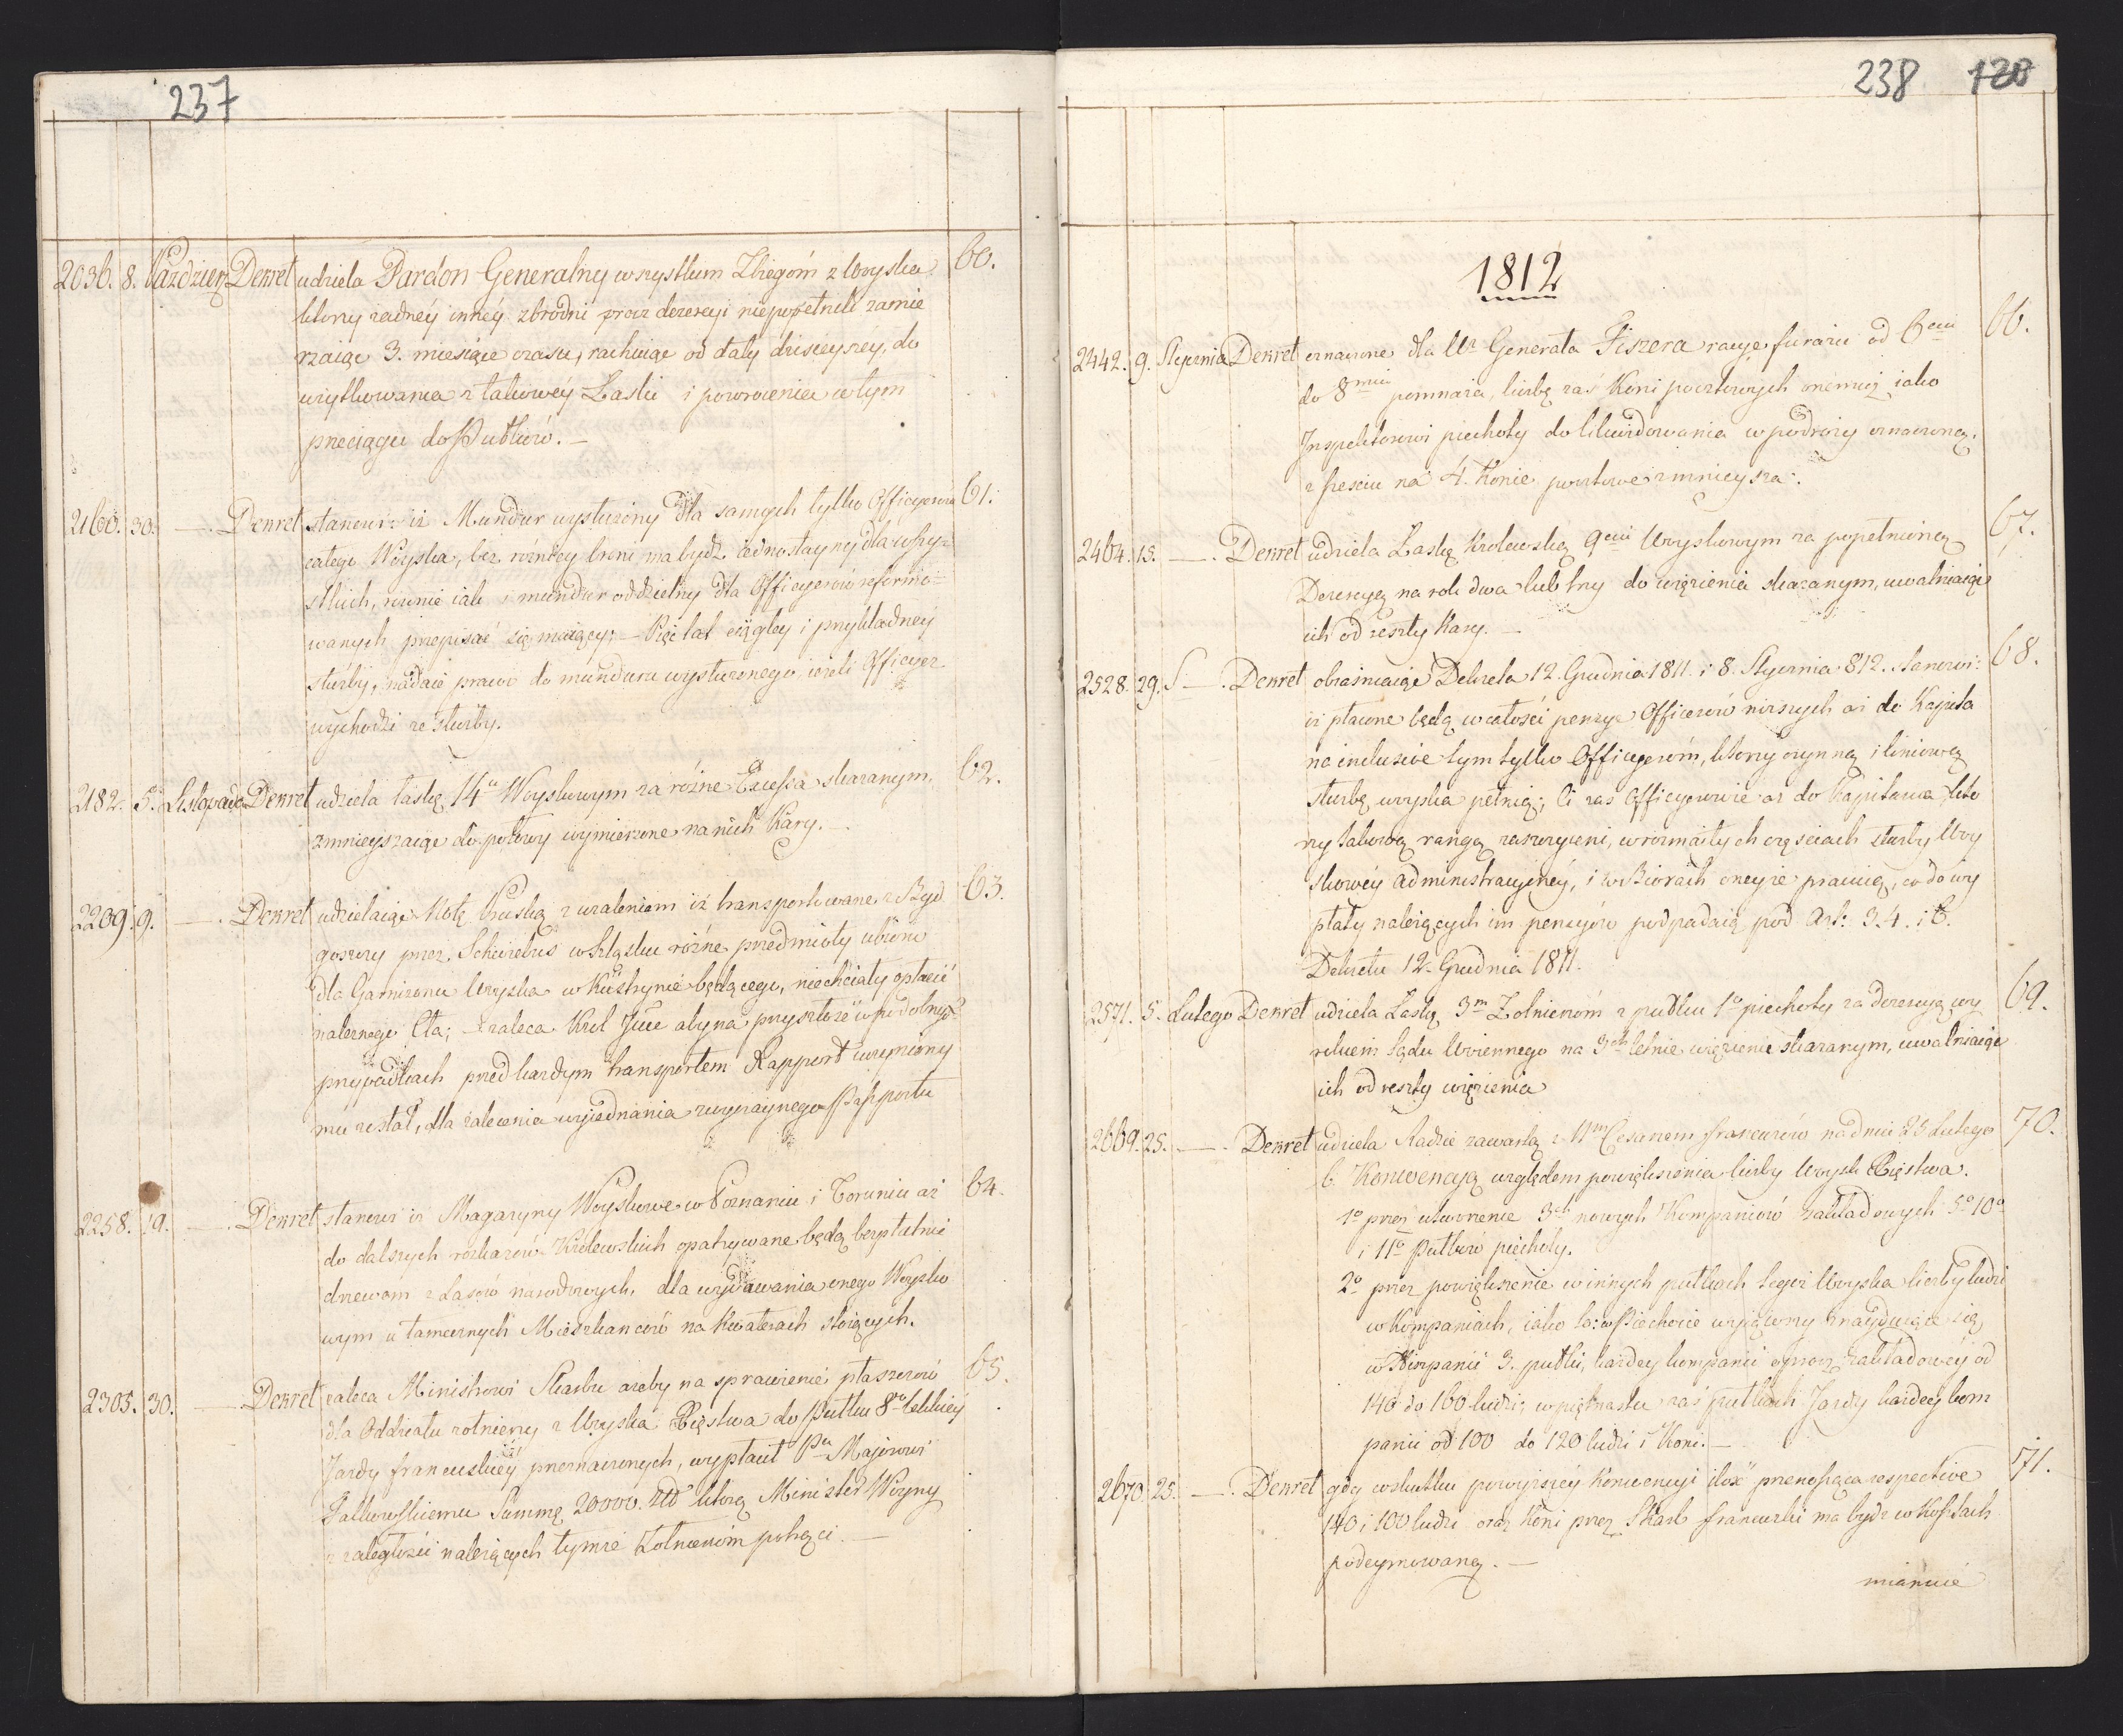 237
2036. 8. Paździer. Dekret udziela Pardon Generalny wszystkim Zbiegóm z Woyska 60.
którzy żadnéy innéy zbrodni procz dezercyi niepopełnili zamie
rzaiąc 3. miesiące czasu, rachuiąc od daty dzisieyszéy, do
użytkowania z takowéy Łaski i powrócenia w tym
przeciągu do Pułków. —
2160. 30. —. Dekret stanowi iż Mundur wysłużony dla samych tylko Officyerów 61.
całego Woyska, bez różnicy broni, ma bydź jednostayny dla wszy=
stkich, równie iak i mundur oddzielny dla Officyerów reformo=
wanych przepisać się maiący; — Pięć lat ciągłey i przykładnéy
służby, nadaie prawo do munduru wysłużonego ieżeli Officyer
wychodzi ze służby.
2182. 5. Listopada Dekret udziela łaskę 14u Woyskowym za różne Excessa skazanym,
62.
zmnieyszaiąc do połowy wymierzone na nich Kary. —
2209. 9. —. Dekret udzielaiąc Notę Pruską z użaleniem iż transportowane z Byd 63.
goszczy przez Schwiebus w Szląsku różne przedmioty ubioru
dla Garnizonu Woyska w Küstrynie będącego, niechciały opłacić
należnego Cła; — zaleca Krol Jmć aby na przyszłość w podobnych
przypadkach przed każdym transportem Rapport uczyniony
mu został, dla zalecenia wyiednania zwyczaynego Passportu
2258. 19. —. Dekret stanowi iż Magazyny Woyskowe w Poznaniu i Toruniu aż 64.
do dalszych rozkazów Królewskich opatrywane będą bezpłatnie
drzewem z Lasów narodowych, dla wydawania onego Woysko
wym u tamecznych Mieszkańców na kwaterach stoiących.
2305. 30. —. Dekret zaleca Ministrowi Skarbu ażeby na sprawienie płaszczów 65.
dla Oddziału żołnierzy z Woyska Xięstwa do Pułku 8go lekkiéy
Jazdy francuskiéy przeznaczonych, wypłacił Pu Majorowi
Summę 20000. Złł którą Minister Woyny
z zaległości należących tymże Żołnierzóm potrąci. —
238 120
1812
2442. 9. Stycznia Dekret oznaczone dla Ur Generała Fiszera racye furażu od 6ciu 66.
do 8miu pomnaża, liczbę zaś Koni pocztowych onemuż iako
Inspektorowi piechoty do likwidowania w podroży oznaczoną,
z sześciu na 4. Konie pocztowe zmnieysza.
2464. 15. —. Dekret udziela Łaskę Krolewską 9ciu Woyskowym za popełnioną 67.
Dezercyę na rok dwa lub trzy do więzienia skazanym, uwalniaiąc
ich od reszty kary. —
2528. 29. S —. Dekret obiaśniaiąc Dekreta 12. Grudnia 1811. i 8. Stycznia 812. stanowi: 68.
iż płacone będą w całości pensye Officerów niższych aż do Kapita
na inclusive tym tylko Officyeróm, którzy czynną i liniową
służbę woyska pełnią; Ci zaś Officyerowie aż do Kapitana któ
rzy takową rangą zaszczyceni, w rozmaitych częściach służby Woy
skowéy administracyinéy, i w Biórach oneyże pracuią, co do wy
płaty należących im pensyów podpadaią pod Art: 3.4. i 6.
Dekretu 12. Grudnia 1811.
2571. 5. Lutego Dekret udziela Łaskę 3m Żołnierzóm z pułku 1o piechoty za dezercyą wy 69.
rokiem Sądu Woiennego na 3ch letnie więzienie skazanym, uwalniaiąc
ich od reszty więzienia
2669. 25. —. Dekret udziela Radzie zawartą z Nm Cesarzem francuzów na dniu 23 Lutego 70.
b. Konwencyą względem powiększenia liczby Woysk Xięstwa.
1o przez utworzenie 3ch nowych Kompaniów zakładowych 5o 10o
i 11o Pułków piechoty.
2o przez powiększenie w innych pułkach tegoż Woyska liczby ludzi
w kompaniach, iako to: w Piechocie wyiąwszy znayduiące się
w Hiszpanii 3. pułki, każdey kompanii oprocz zakładowéy od
140 do 160 ludzi; w piętnastu zaś pułkach Jazdy każdey kom
panii od 100 do 120 ludzi i Koni. —
2670. 25. —. Dekret gdy w skutku powyższéy Konwencyi ilość przenosząca respective 71.
140 i 100 ludzi oraz Koni przez Skarb francuzki ma bydź w kosztach
podeymowaną. —
mianuie